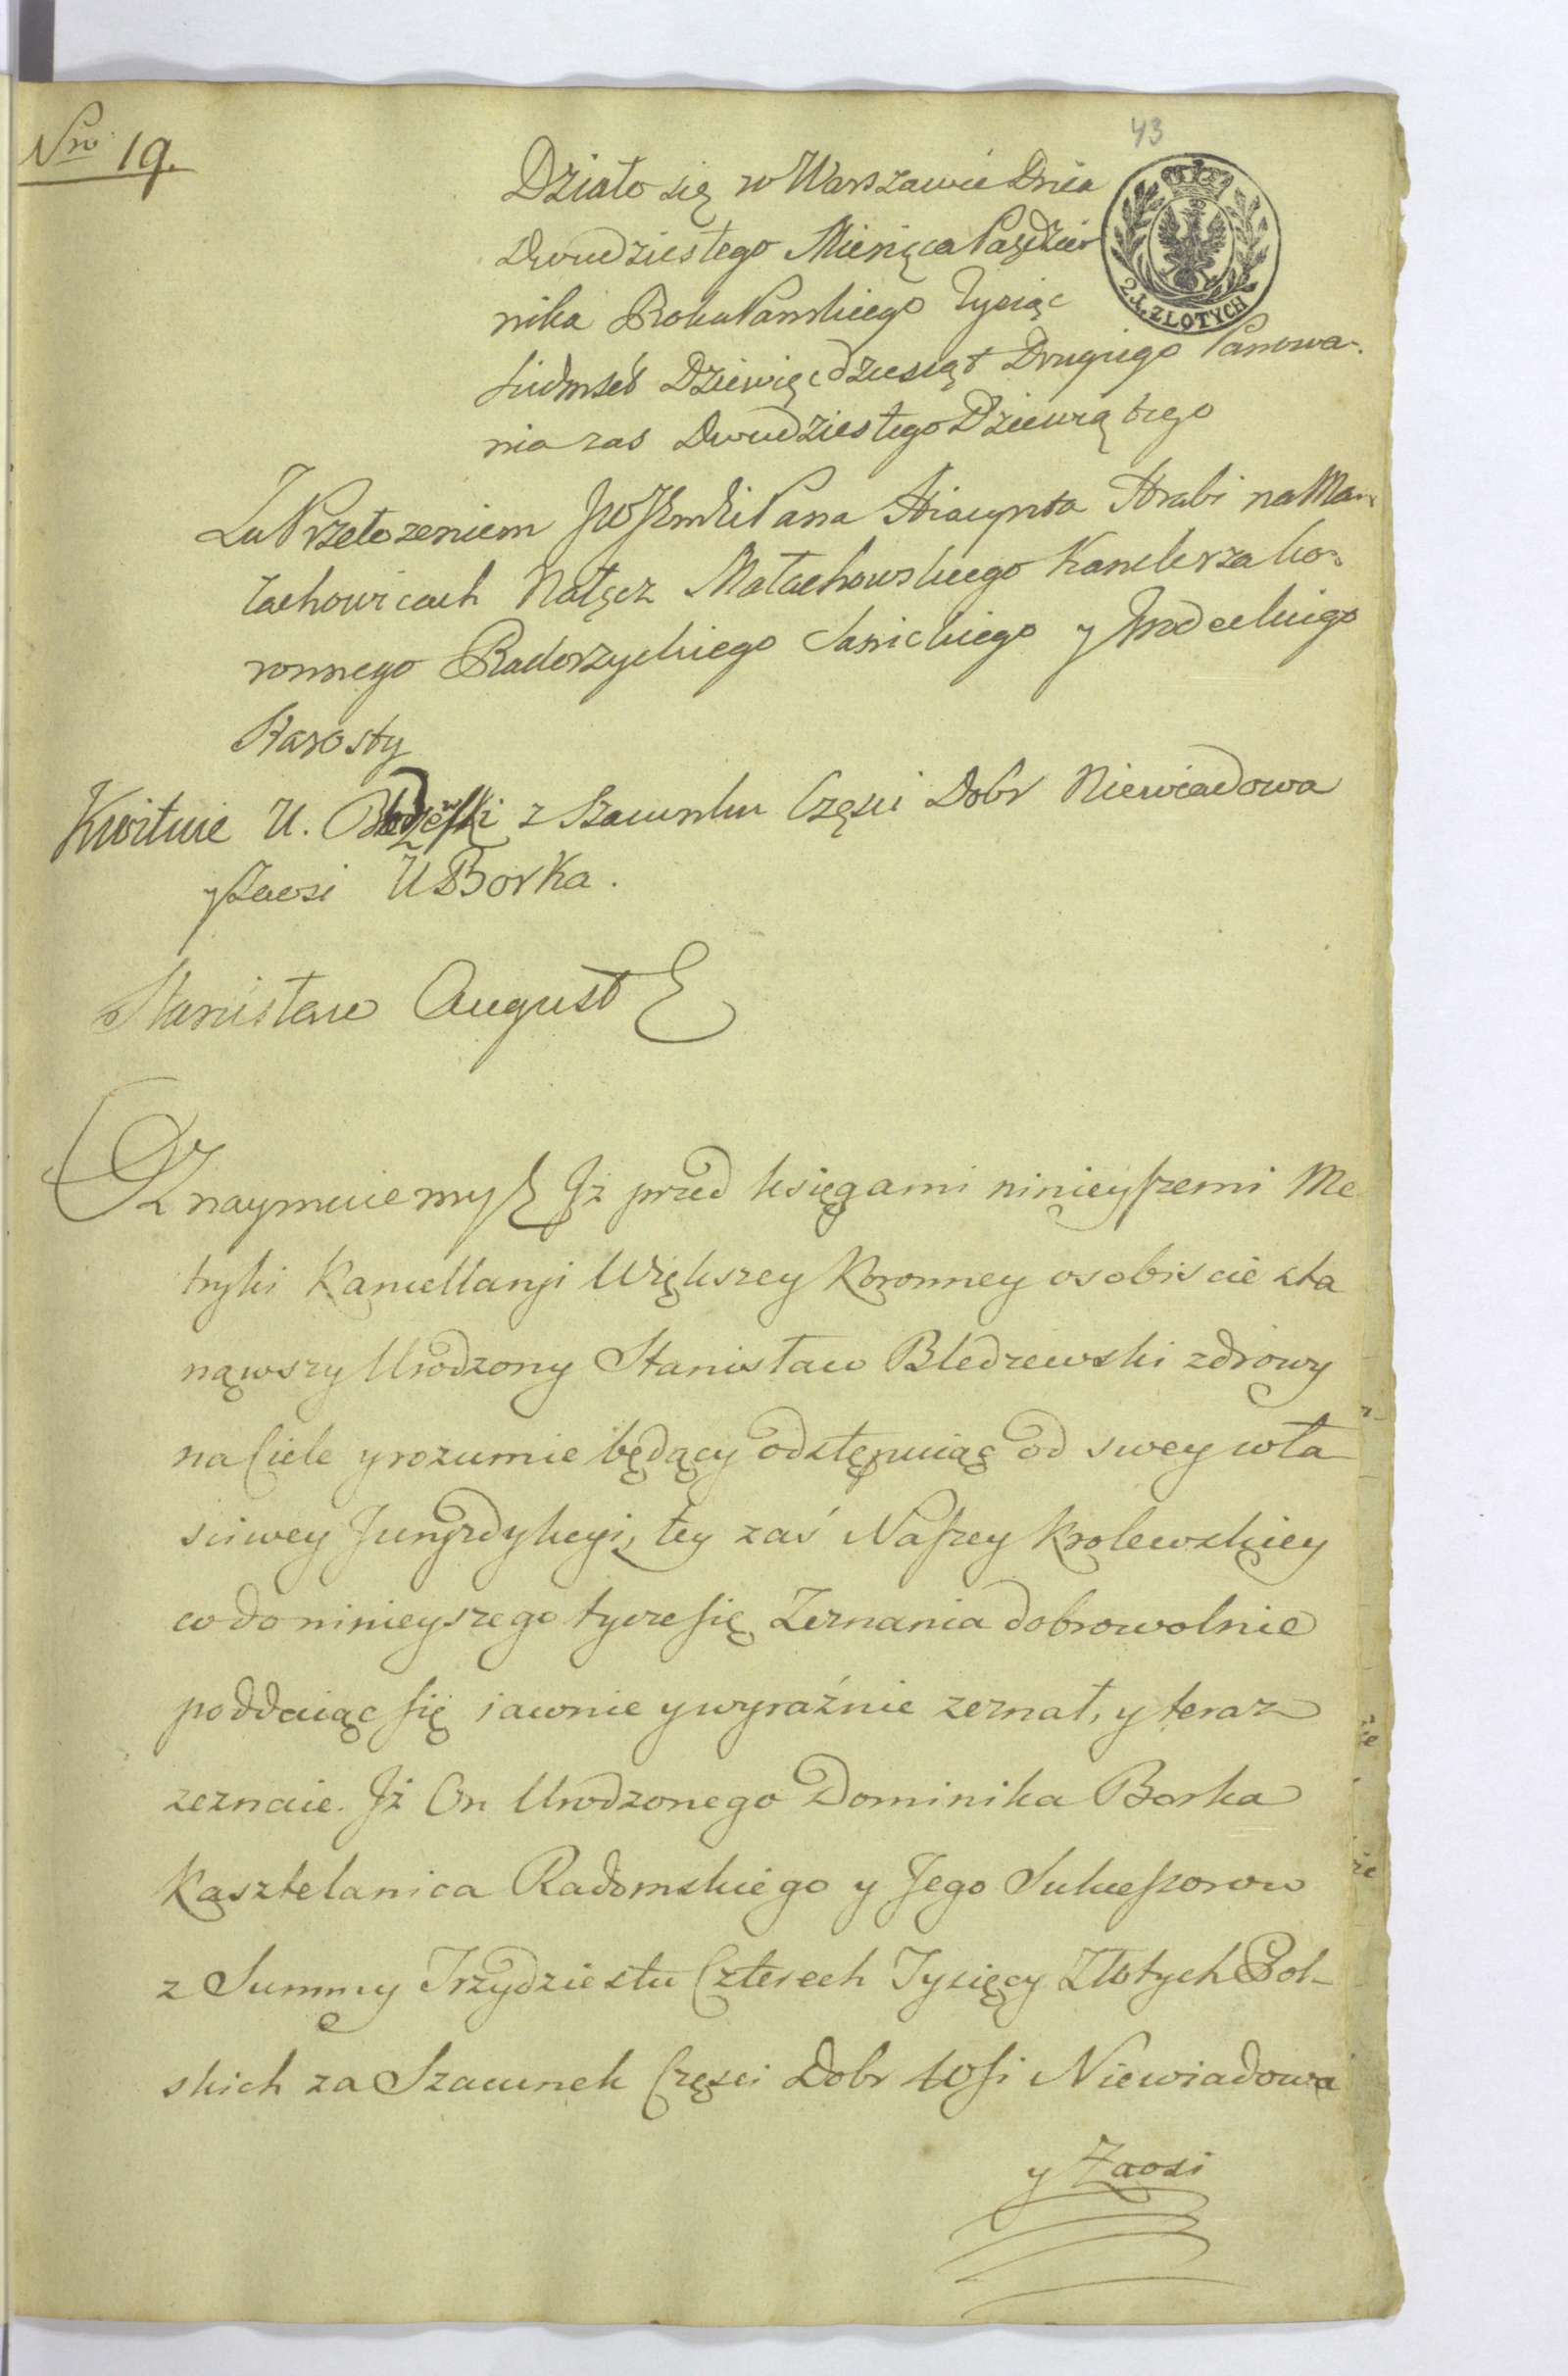 Nro 19.
43
Działo się w Warszawie Dnia
Dwudziestego Miesiąca Pazdzier
nika Roku Panskiego Tysiąc
Siedmset Dziewięcdziesiąt Drugiego Panowa-
nia zas Dwudziestego Dziewiątego
2. ZŁ. ZLOTYCH
Za Przełozeniem JW JPana Hiacynta Hrabi na Ma-
łachowicach Nałęcz Małachowskiego Kanclerza ko-
ronnego Radoszyckiego Sanickiego y Grodeckiego
Starosty
Kwituie U. Bledzewski z Szacunku Częsci Dobr Niewiadowa
y Zaosi U Borka.
Stanisław August
Oznaymuiemy Jż przed księgami ninieyszemi Me
tryki Kancellaryi Większey Koronney osobiscie sta
nąwszy Urodzony Stanisław Bledzewski zdrowy
na Ciele y rozumie będący odstępuiąc od swey wła
sciwey Juryzdykcyi, tey zaś Naszey Krolewskiey
co do ninieyszego tycze się Zeznania dobrowolnie
poddaiąc się iawnie y wyraźnie zeznał, y teraz
zeznaie. Jż On Urodzonego Dominika Borka
Kasztelanica Radomskiego y Jego Sukcessorow
z Summy Trzydziestu Czterech Tysięcy Złotych Pol-
skich za Szacunek Częsci Dobr Wsi Niewiadowa
y Zaosi